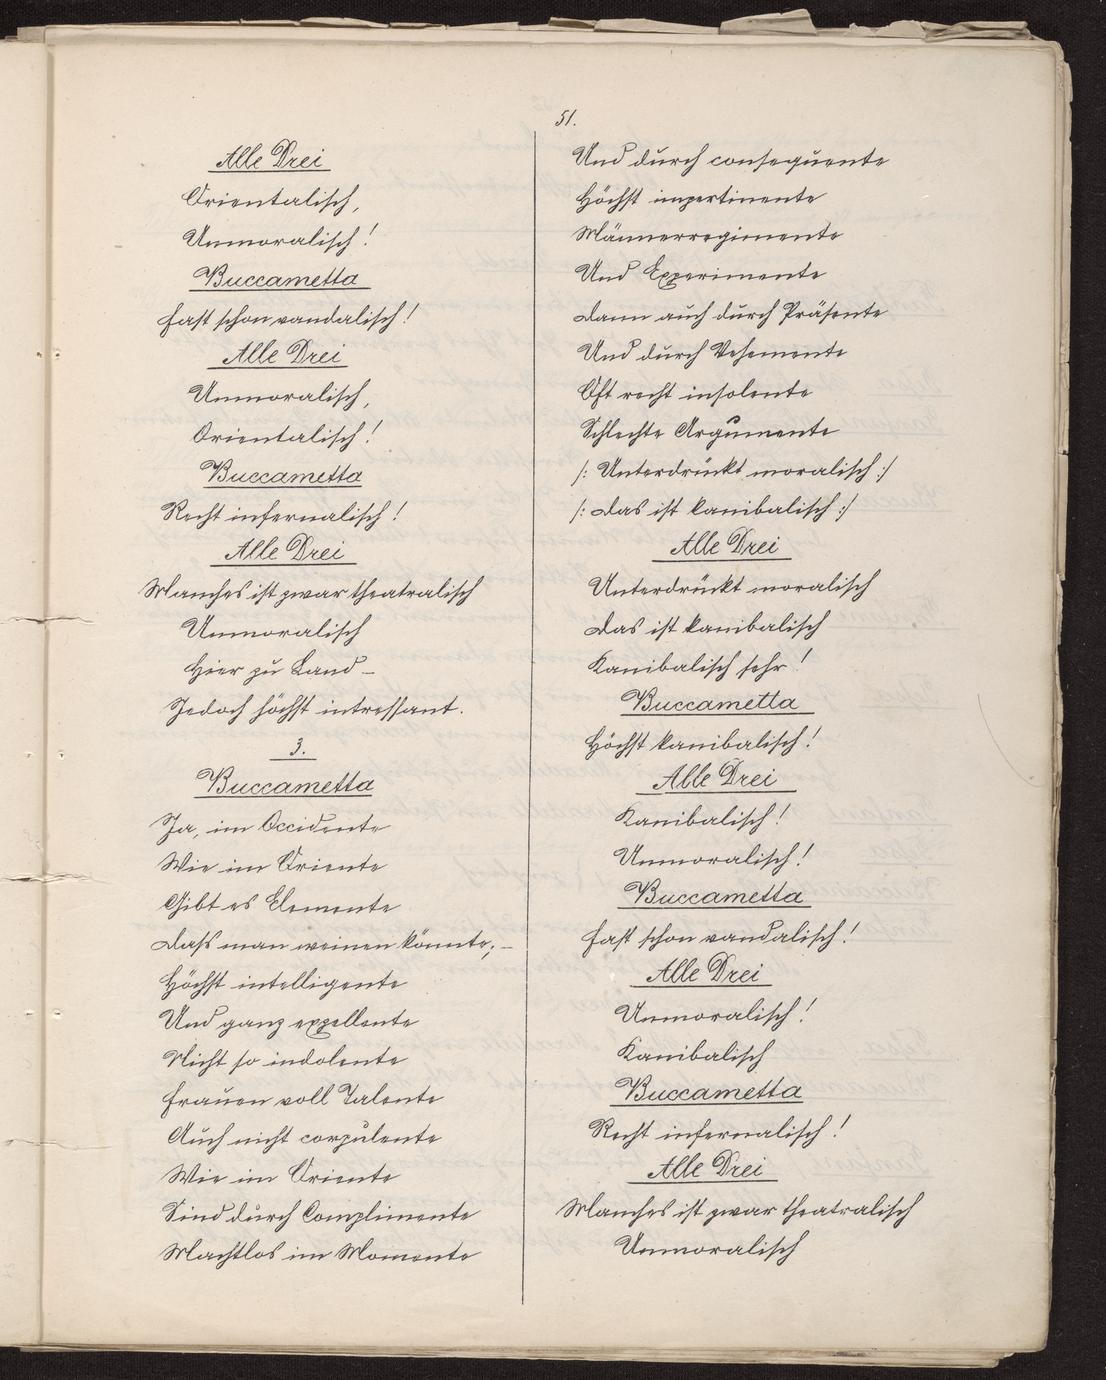 51.
Alle Drei
Orientalisch,
Unmoralisch!
Buccametta
Fast schon vandalisch!
Alle Drei
Unmoralisch,
Orientalisch!
Buccametta
Recht infernalisch!
Alle Drei
Manches ist zwar theatralisch
Unmoralisch
Hier zu Land –
Jedoch höchst intressant.
3.
Buccametta
Ja, im Occidente
Wie im Oriente
Gibt es Elemente
Dass man weinen könnte; –
Höchst intelligente
Und ganz expellente
Nicht so indolente
Frauen voll Talente
Auch nicht corpulente
Wie im Oriente
Sind durch Complimente
Machtlos im Momente
Und durch consequente
Höchst impertinente
Männerregimente
Und Experimente
Dann auch durch Präsente
Und durch Vehemente
Oft recht insolente
Schlechte Argumente
/: Unterdrückt moralisch :/
/: Das ist kanibalisch :/
Alle Drei
Unterdrückt moralisch
Das ist kanibalisch
Kanibalisch sehr!
Buccametta
Höchst kanibalisch!
Alle Drei
Kanibalisch!
Unmoralisch!
Buccametta
Fast schon vandalisch!
Alle Drei
Unmoralisch!
Kanibalisch
Buccametta
Recht infernalisch!
Alle Drei
Manches ist zwar theatralisch
Unmoralisch